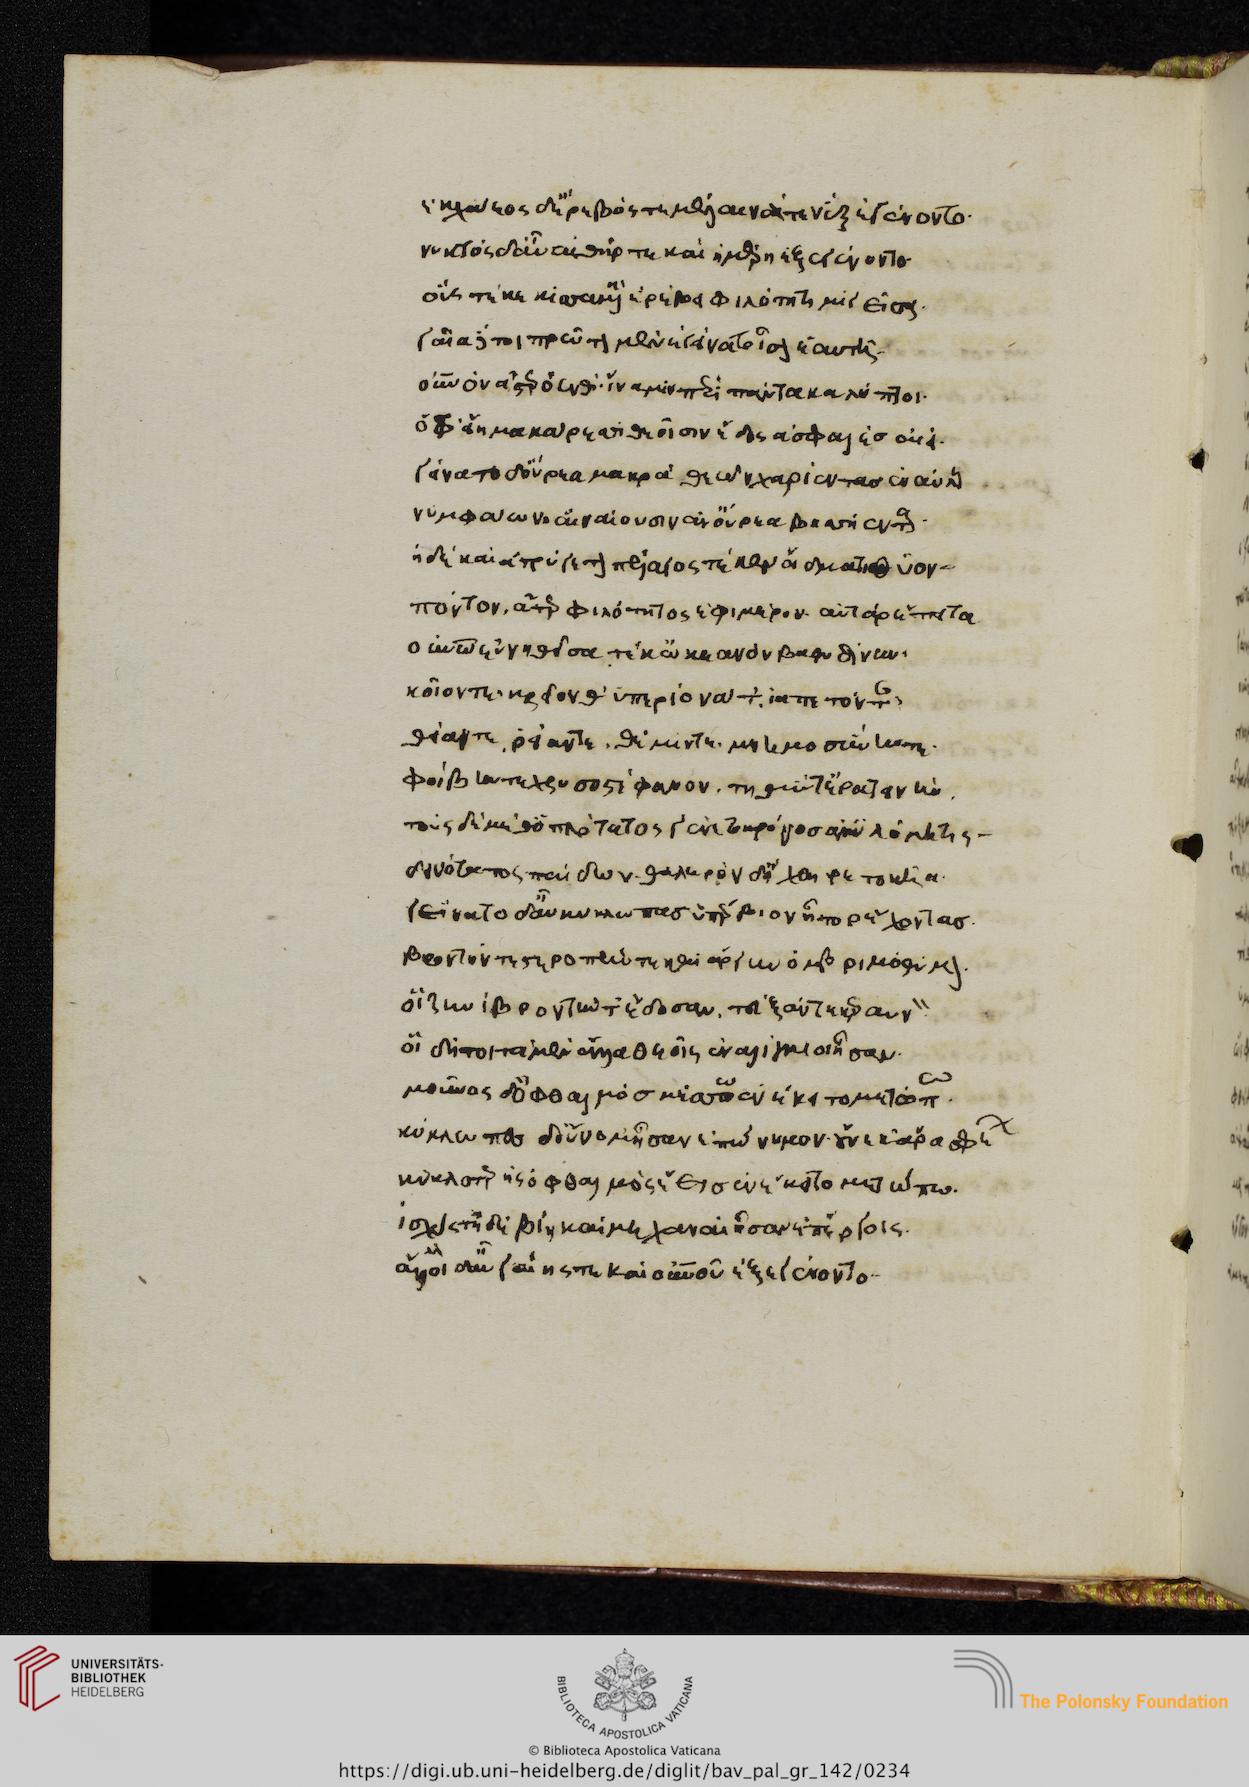 ἐκ χάεος δ' ἔρεβός τε μέλαινά τε νὺξ ἐγένοντο·
νυκτὸς δ' αὖτ' αἰθήρ τε καὶ ἡμέρη ἐξεγένοντο
οὓς τέκε κυσαμένη ἐρέβει φιλότητι μιγεῖσα·
γαῖα δέ τοι πρῶτον μὲν ἐγείνατο ἶσον ἑαυτῇ
οὐνὸν ἀστερόενθ'· ἵνα μιν περὶ πάντα καλύπτοι·
ὄφρ' εἴη μακάρεσσι θεοῖσιν ἕδος ἀσφαλὲς αἰεί·
γείνατο δ' οὔρεα μακρὰ θεῶν χαρίεντας ἐναύλους
νυμφάων αἳ ναίουσιν ἀν' οὔρεα βησσήεντα·
ἡ δὲ καὶ ἀτρύγετον πέλαγος τέκεν οἴδματι θῦον
πόντον, ἄτερ φιλότητος ἐφιμέρου· αὐτὰρ ἔπειτα
οὐνῷ εὐνηθεῖσα τέκ' ὠκεανὸν βαθυδίνην·
κοῖόν τε· κρεῖόν θ' ὑπερίονά τ', ἰαπετόν τε
θείαν τε, ῥείαν τε, θέμιν τε· μνημοσύνην τε·
φοίβην τε χρυσοστέφανον, τηθύν τ' ἐρατεινήν,
τοὺς δὲ μέθ' ὁπλότατος γένετο κρόνος ἀγκυλομήτης
δεινότατος παίδων· θαλερὸν δ' ἤχθηρε τοκῆα·
γείνατο δ' αὖ κύκλωπας ὑπέρβιον ἦτορ ἔχοντας·
βροντήν τε στεροπήν τε καὶ ἄργην ὀμβριμόθυμον·
οἳ ζηνὶ βροντήν τ' ἔδοσαν, τεῦξάν τε κεραυνόν
οἳ δή τοι τὰ μὲν ἄλλα θεοῖς ἐναλίγκιοι ἦσαν·
μοῦνος δ' ὀφθαλμὸς μέσσῳ ἐνέκειτο μετώπῳ·
κύκλωπες δ' ὄνομ' ἦσαν ἐπώνυμον· οὕνεκ' ἄρα σφέων
κυκλοτερὴς ὀφθαλμὸς ἕεις ἐνέκειτο μετώπῳ·
ἰσχύς τ' ἠδὲ βίη καὶ μηχαναὶ ἦσαν ἐπ' ἔργοις·
ἄλλοι δ' αὖ γαίης τε καὶ οὐνοῦ ἐξεγένοντο
UNIVERSITÄTS-
BIBLIOTHEK
HEIDELBERG
BIBLIOTECA APOSTOLICA VATICANA
The Polonsky Foundation
© Biblioteca Apostolica Vaticana
https://digi.ub.uni-heidelberg.de/diglit/bav_pal_gr_142/0234